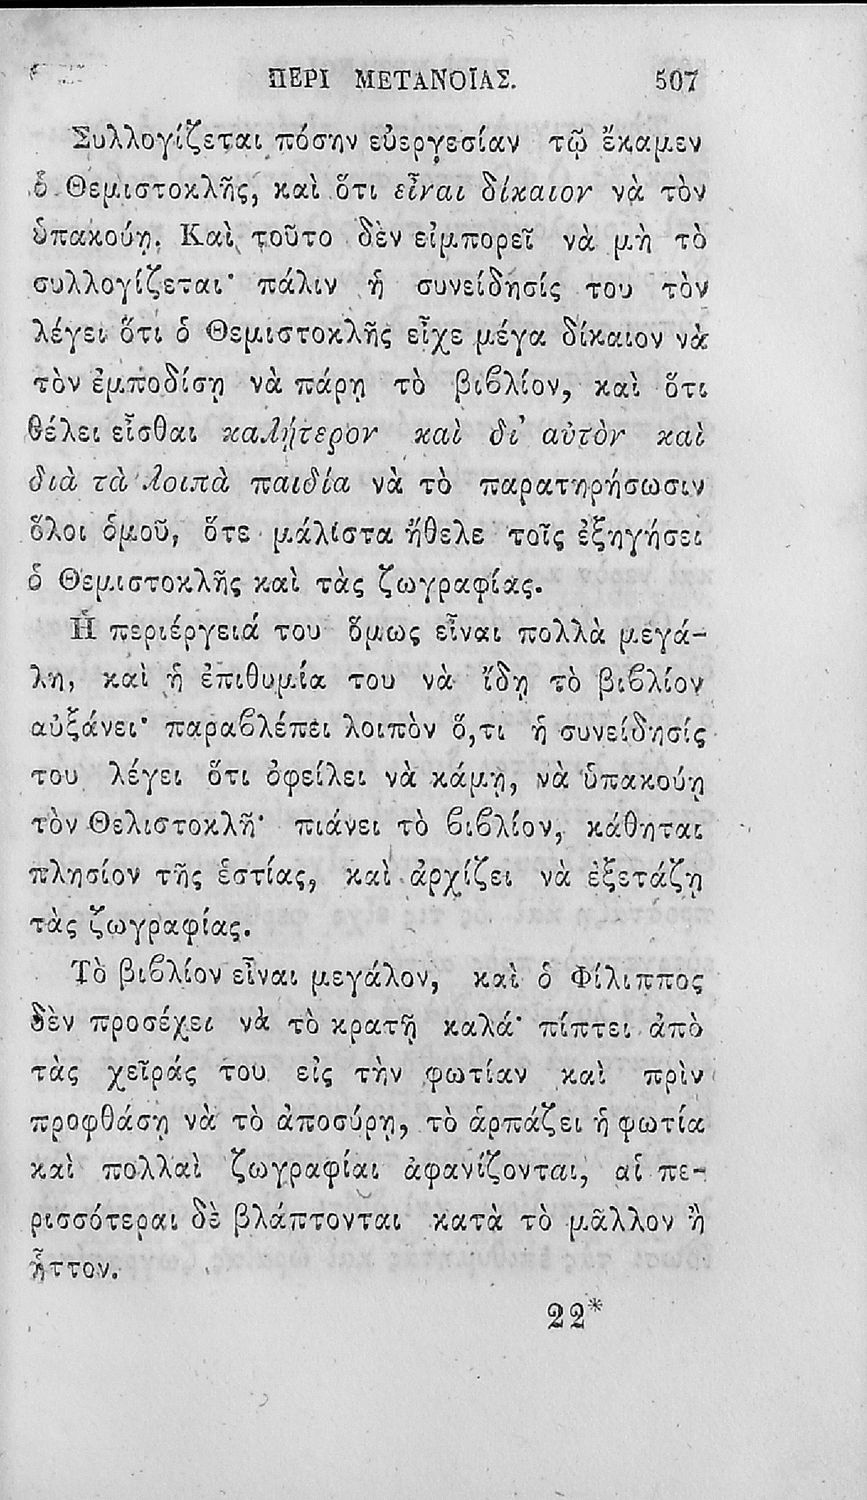 ΠΕΡΙ ΜΕΤΑΝΟΙΑΣ. 507
Συλλογίζεται πόσην εὐεργεσίαν τῷ ἔκαμεν
ὁ Θεμιστοκλῆς, καὶ ὅτι εἶναι δίκαιον νὰ τὸν
ὑπακούῃ. Καὶ τοῦτο δὲν εἰμπορεῖ νὰ μὴ τὸ
συλλογίζεται· πάλιν ἡ συνείδησίς του τὸν
λέγει ὅτι ὁ Θεμιστοκλῆς εἶχε μέγα δίκαιον νὰ
τὸν ἐμποδίσῃ νὰ πάρῃ τὸ βιβλίον, καὶ ὅτι
θέλει εἶσθαι καλήτερον καὶ δι’ αὐτὸν καὶ
διὰ τὰ λοιπὰ παιδία νὰ τὸ παρατηρήσωσιν
ὅλοι ὁμοῦ, ὅτε μάλιστα ἤθελε τοῖς ἐξηγήσει
ὁ Θεμιστοκλῆς καὶ τὰς ζωγραφίας.
Ἡ περιέργειά του ὅμως εἶναι πολλὰ μεγά-
λη, καὶ ἡ ἐπιθυμία του νὰ ἴδῃ τὸ βιβλίον
αὐξάνει· παραβλέπει λοιπὸν ὅ,τι ἡ συνείδησίς
του λέγει ὅτι ὀφείλει νὰ κάμῃ, νὰ ὑπακούῃ
τὸν Θελιστοκλῆ· πιάνει τὸ βιβλίον, κάθηται
πλησίον τῆς ἑστίας, καὶ ἀρχίζει νὰ ἐξετάζῃ
τὰς ζωγραφίας.
Τὸ βιβλίον εἶναι μεγάλον, καὶ ὁ Φίλιππος
δὲν προσέχει νὰ τὸ κρατῇ καλά· πίπτει ἀπὸ
τὰς χεῖράς του εἰς τὴν φωτίαν καὶ πρὶν
προφθάσῃ νὰ τὸ ἀποσύρῃ, τὸ ἁρπάζει ἡ φωτία
καὶ πολλαὶ ζωγραφίαι ἀφανίζονται, αἱ πε-
ρισσότεραι δὲ βλάπτονται κατὰ τὸ μᾶλλον ἢ
ἧττον.
22*